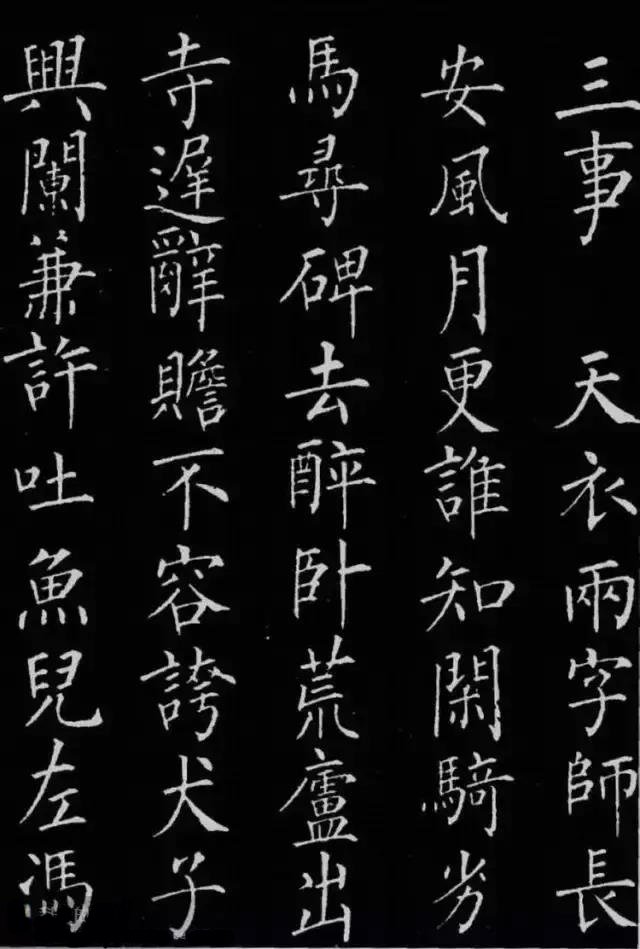 三事　天衣兩字師長
安風月更誰知閑騎劣
馬尋碑去醉卧荒廬出
寺遲辭贍不容誇犬子
興闌兼許吐魚兒左馮